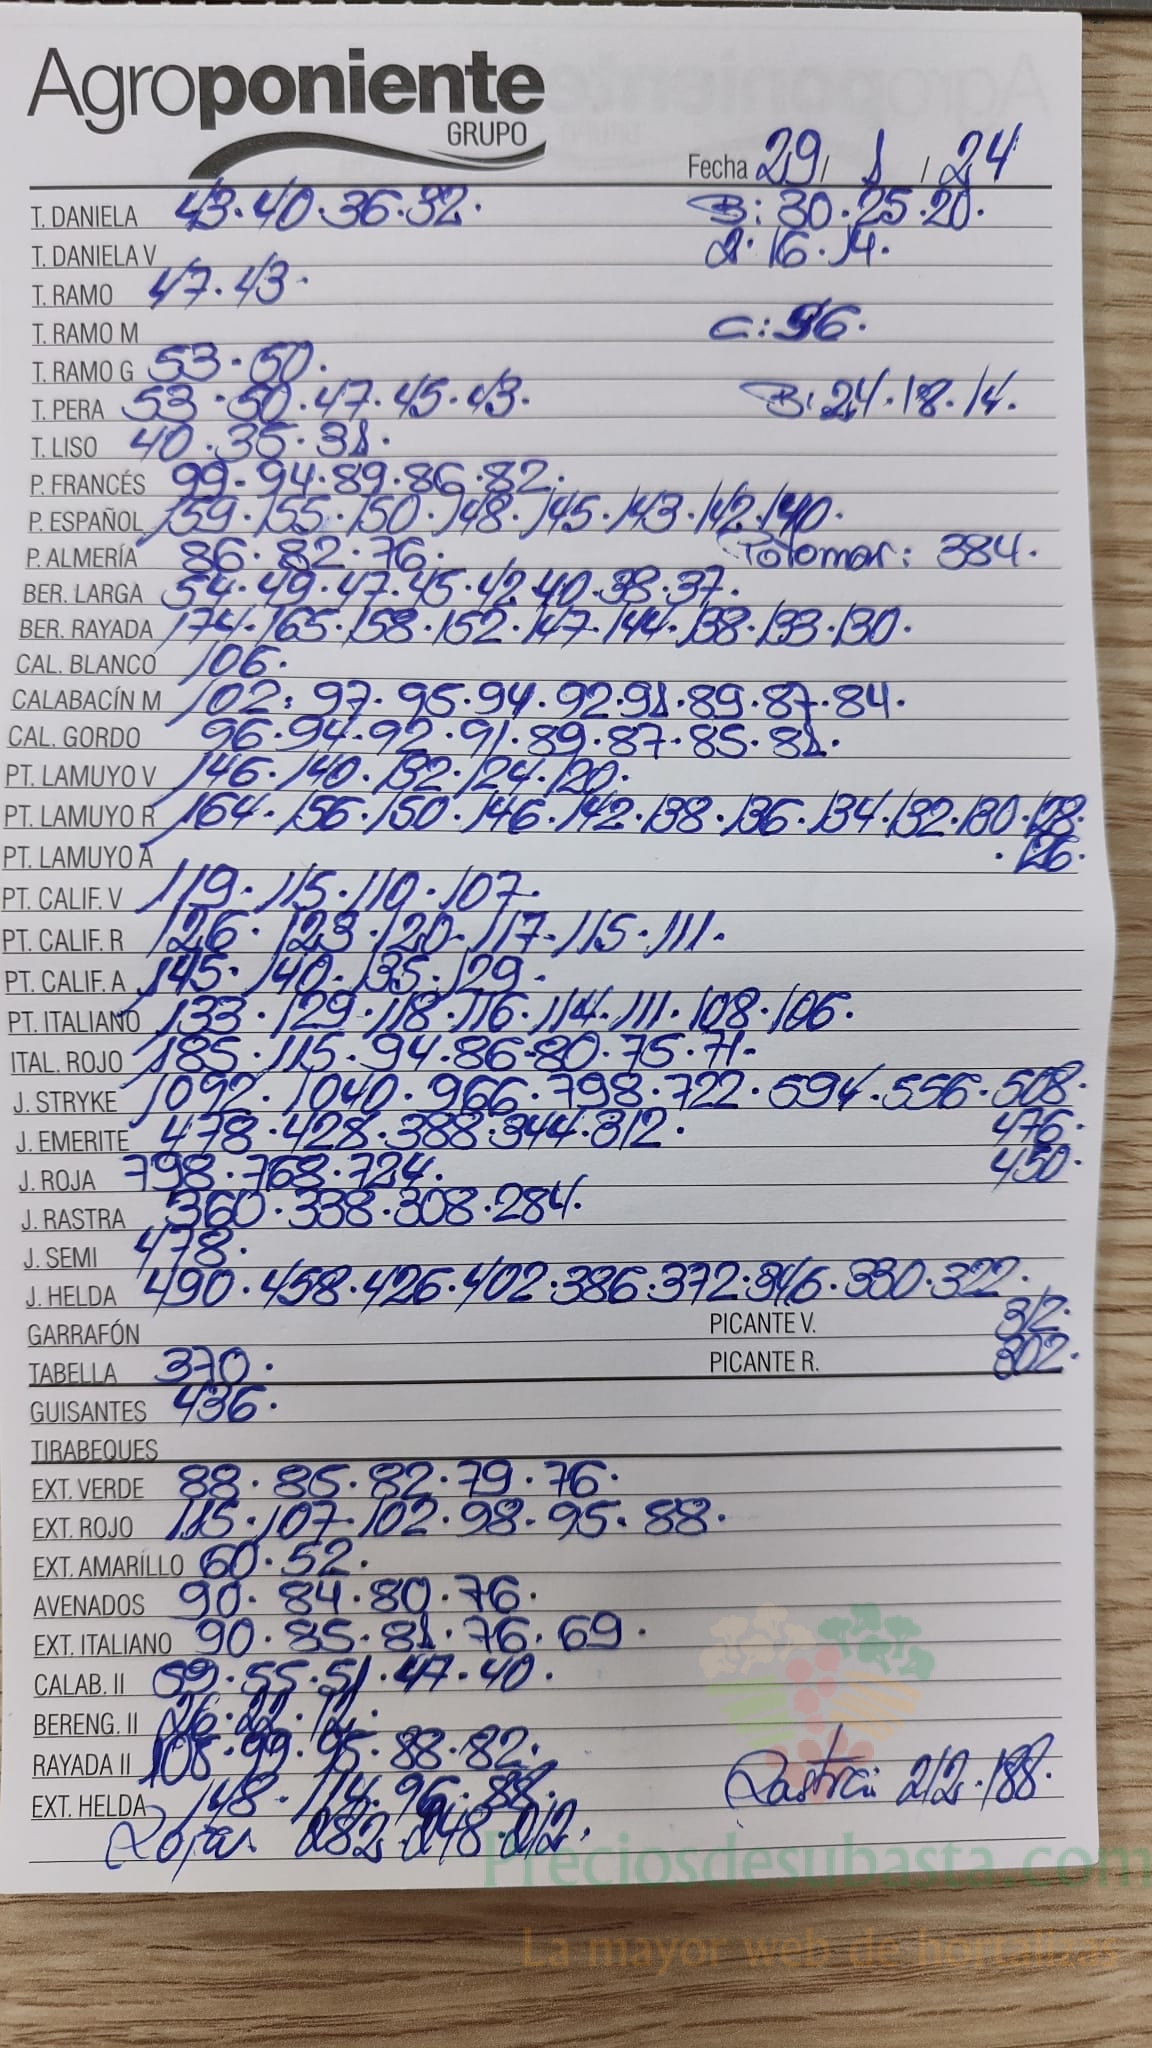 Agroponiente
GRUPO
Fecha 29 / 1 / 24
T. DANIELA 43·40·36·32· B: 30·25·20·
T. DANIELA V 2· 16·14·
T. RAMO 47·43·
T. RAMO M C: 56·
T. RAMO G 53·50·
T. PERA 53·50·47·45·43· B: 24·18·14·
T. LISO 40·35·31·
P. FRANCÉS 99·94·89·86·82·
P. ESPAÑOL 159·155·150·148·145·143·142·140·
P. ALMERÍA 86·82·76· 384·
BER. LARGA 54·49·47·45·42·40·38·37·
BER. RAYADA 174·165·158·152·147·144·138·133·130·
CAL. BLANCO 106·
CALABACÍN M 102: 97·95·94·92·91·89·87·84·
CAL. GORDO 96·94·92·91·89·87·85·81·
PT. LAMUYO V 146·140·132·124·120·
PT. LAMUYO R 164·156·150·146·142·138·136·134·132·130·128·
PT. LAMUYO A ·126·
PT. CALIF. V 119·115·110·107·
PT. CALIF. R 126·123·120·117·115·111·
PT. CALIF. A 145·140·135·129·
PT. ITALIANO 133·129·118·116·114·111·108·106·
ITAL. ROJO 185·115·94·86·80·75·71·
J. STRYKE 1092·1040·966·798·722·594·556·508·
J. EMERITE 478·428·388·344·312· 476·
J. ROJA 798·768·724· 450·
J. RASTRA 360·338·308·284·
J. SEMI 478·
J. HELDA 490·458·426·402·386·372·346·330·322·
GARRAFÓN PICANTE V. 312·
TABELLA 370· PICANTE R. 302·
GUISANTES 436·
TIRABEQUES
EXT. VERDE 88·85·82·79·76·
EXT. ROJO 115·107·102·98·95·88·
EXT. AMARÍLLO 60·52·
AVENADOS 90·84·80·76·
EXT. ITALIANO 90·85·81·76·69·
CALAB. II 59·55·51·47·40·
BERENG. II 26·22·12·
RAYADA II 108·99·95·88·82·
EXT. HELDA 148·114·96·88· Rastra: 212·188·
Rojas 282·248·212·
Preciosdesubasta.com
La mayor web de hortalizas